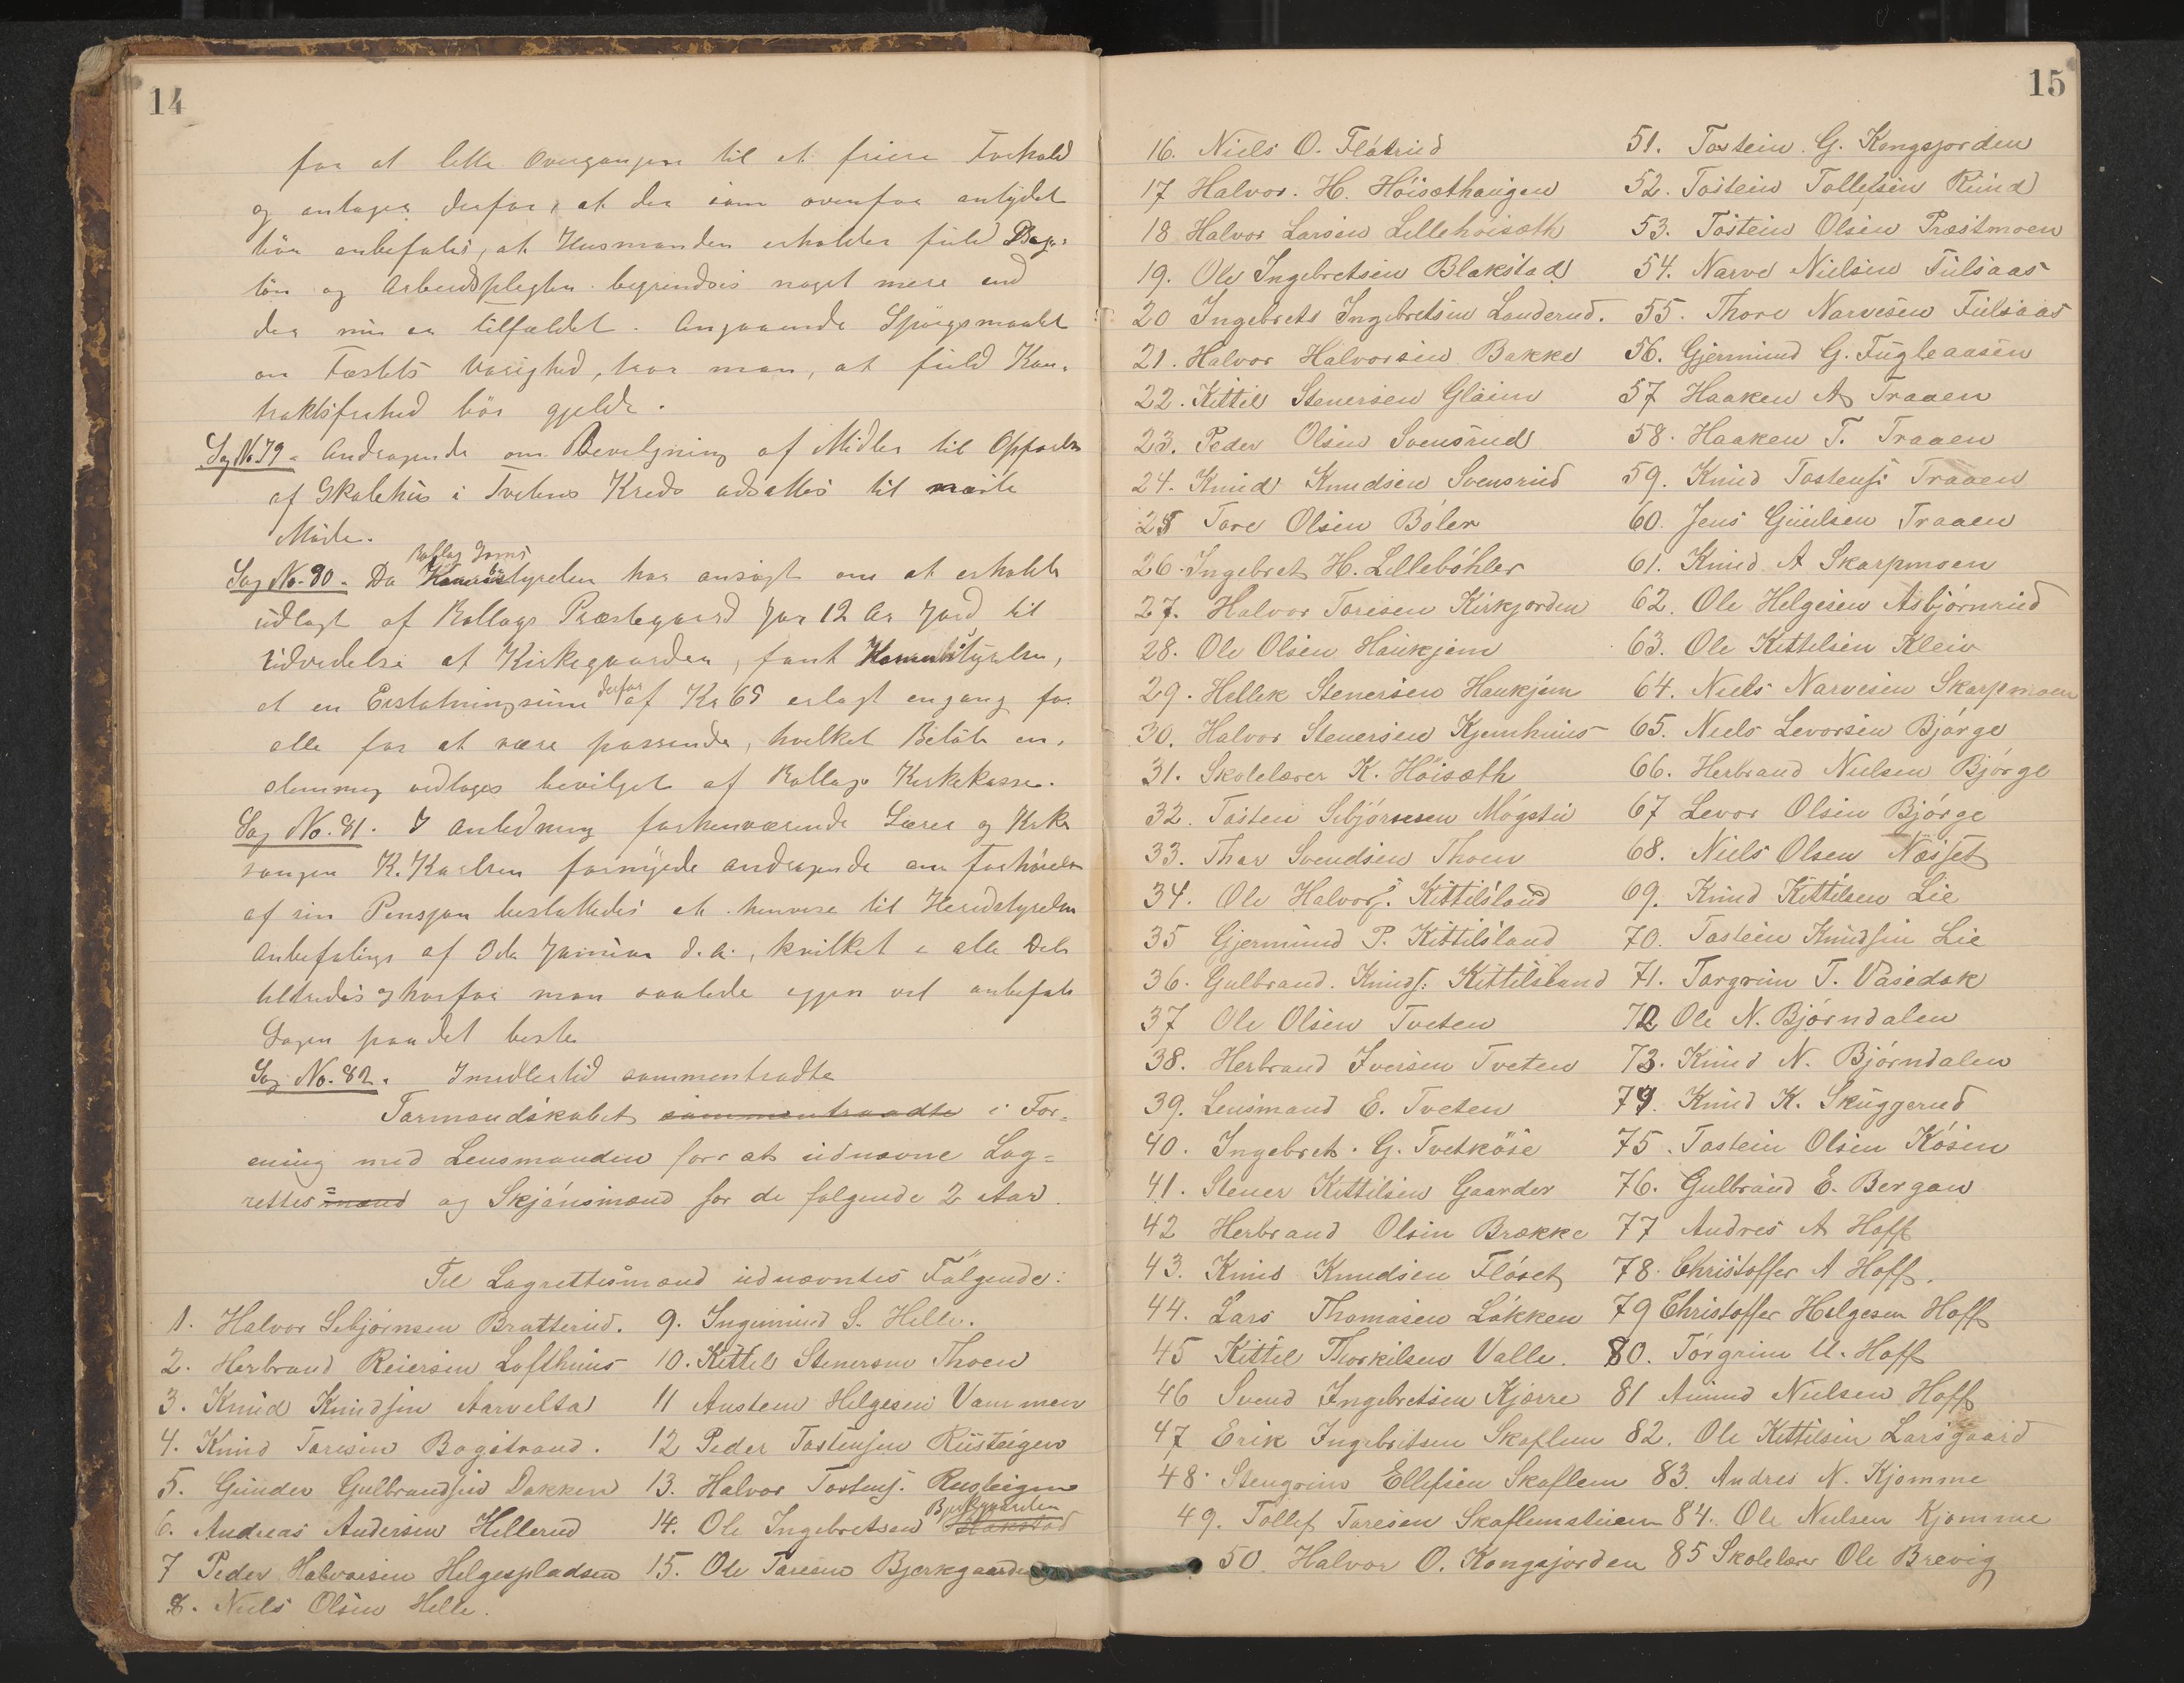 14
for at lette Overgangen til et friere Forhold
og antager derfor, at der som ovenfor antydet
bör anbefales, at Husmanden erholder fuld Dag-
lön og Arbeidspligten begrændses noget mere end
der nu er tilfældet. Angaaende Spörgsmaalet
om Fæstets Varighed, tror man, at fuld Kon-
traktsfrihed bör gjelde.
Sag No 79. Andragende om Bevilgning af Midler til Opförelse
af Skolehus i Tvetens Kreds udsattes til næste
Möde.
Rollag Sogns
Sag No. 80. Da styrelse har ansögt om at erholde
udlagt af Rollags Præstegaard Jor 12 Ar Jord til
Udvidelse af Kirkegaarden, fant styrelsen,
derfor
at en Erstatningssum af Kr 65 erlagt engang for
alle for at være passende, hvilket Belöb en-
stemmig vedtoges bevilget af Rollags Kirkekasse.
Sag No. 81. I Anledning forhenværende Lærer og Kirke
sanger K. Karlsen fornyede Andragende om Forhöielse
af sin Pension besluttedes at henvise til Herredstyrelsens
Anbefaling af 3de Januar d.A., hvilket i alle Dele
tiltrædes og hvorfor man saaledes igjen vil anbefale
Sagen paa det beste
Sag No. 82. Imidlertid sammentraadte
Formandskabet sammentraadte i For-
ening med Lensmanden for at udnævne Lag-
rettes-mænd og Skjönsmænd for de følgende 2 Aar.
Til Lagrettesmænd udnævntes Følgende:
1. Halvor Sebjörnsen Bratterud.
2. Herbrand Reiersen Lofthuus
3. Knud Knudsen Aarvelta
4. Knud Toresen Bogstrand.
5. Gunder Gulbrandsen Dokken
6. Andreas Andersen Hellerud
7 Peder Halvorsen Helgespladsen
8. Niels Olsen Helle.
9. Ingemund S. Helle.
10. Kittel Stenersen Thoen
11 Austein Helgesen Vammen
12 Peder Tostensen Rusteigen
13. Halvor Tostens. Rusteigen
Bjerkgaarden
14. Ole Ingebretsen Blakstad
15. Ole Toresen Bjerkgaarden
15
16. Niels O. Flåtrud
17 Halvor. H. Höisæthaugen
18 Halvor Larsen Lillehöisæth
19. Ole Ingebretsen Blakstad
20 Ingebret Ingebretsen Landerud.
21. Halvor Halvorsen Bakke
22. Kittil Stenersen Glaim
23. Peder Olsen Svensrud
24. Knud Knudsen Svensrud
25 Tore Olsen Böler
26. Ingebret H. Lilleböhler
27. Halvor Toresen Kirkjorden
28. Ole Olsen Haukjem
29. Hellik Stenersen Haukjem
30. Halvor Stenersen Kjemhuus
31. Skolelærer K. Höisæth
32. Tosten Sebjörnsen Mögstu
33. Thor Svendsen Thoen
34. Ole Halvors. Kittilsland
35 Gjermund P. Kittilsland
36. Gulbrand. Knuds. Kittilsland
37 Ole Olsen Tveten
38. Herbrand Iversen Tveten
39. Lensmand E. Tveten
40. Ingebret. G. Tvetköse
41. Stener Kittilsen Gaarder
42 Herbrand Olsen Brække
43. Knud Knudsen Flöset
44. Lars Thomasen Lökken
45 Kittil Thorkilsen Valle.
46 Svend Ingebretsen Kjerre
47 Erik Ingebritsen Skoflem
48. Stengrim Ellefsen Skaflem
49. Tollef Toresen Skaflemstuen
50. Halvor O. Kongsjorden
51. Tostein. G. Kongsjorden
52. Tostein Tollefsen Rund
53. Tostein Olsen Præstmoen
54. Narve Nielsen Fulsaas
55. Thore Narvesen Fulsaas
56. Gjermund G. Fugleaasen
57 Haaken A Traaen
58. Haaken T. Traaen
59. Knud Tostens. Traaen
60. Jens Guulsen Traaen
61. Knud A Skarpmoen
62. Ole Helgesen Asbjörnrud
63. Ole Kittelsen Kleiv
64. Niels Narvesen Skarpmoen
65. Niels Levorsen Bjørge
66. Herbrand Nielsen Bjørge
67 Levor Olsen Bjørge
68. Niels Olsen Næsset
69. Knud Kittilsen Lie
70. Tostein Knudsen Lie
71. Torgrim T. Vasedok
72 Ole N. Bjørndalen
73. Knud N. Bjørndalen
74. Knud K. Skuggerud
75. Tostein Olsen Kösen
76. Gulbrand E. Bergan
77 Andres A Hoff
78. Christoffer A Hoff.
79 Christoffer Helgesen Hoff
80. Torgrim U. Hoff
81 Amund Nielsen Hoff
82. Ole Kittilsen Larsgaard
83. Andres N. Kjomme
84. Ole Nielsen Kjomme
85 Skolelærer Ole Brevig